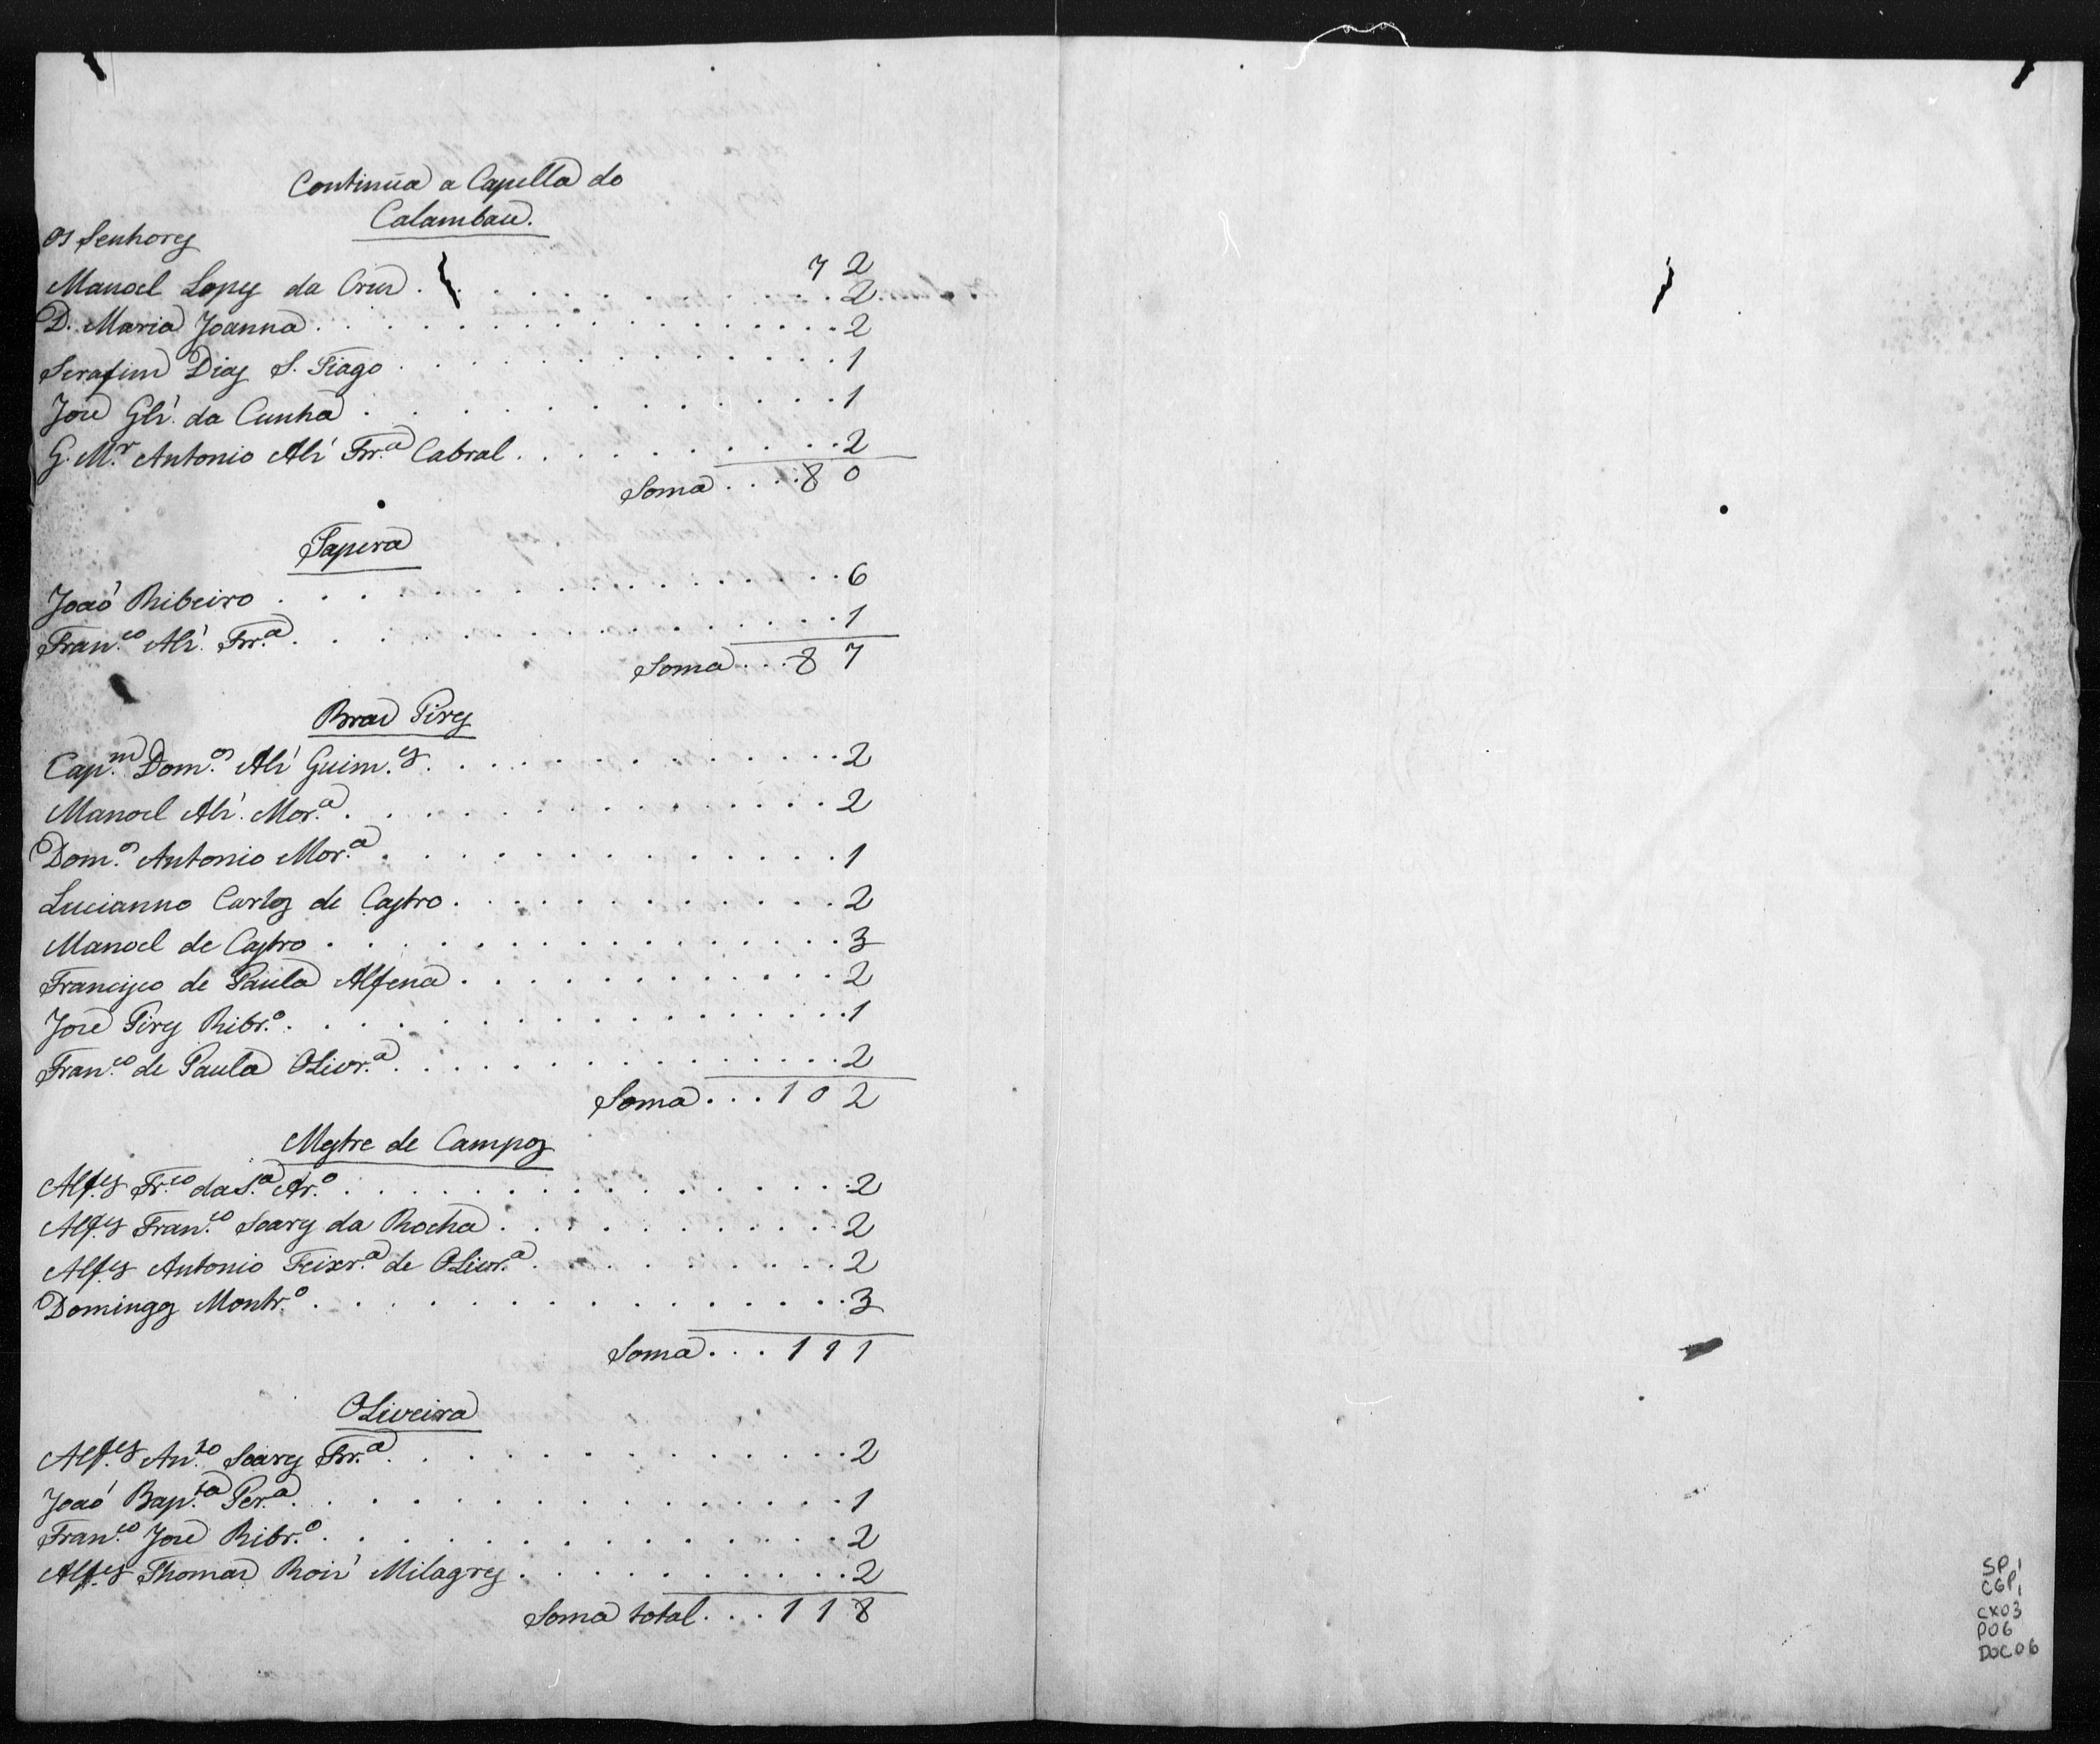 Continúa a Capella do
Calambau.
Os Senhores
7 2
Manoel Lopes da Crus . . . . . . . . . . 2
D. Maria Joanna . . . . . . . . . . 2
Serafim Dias S. Tiago . . . . . . . . . . 1
Jose Glz' da Cunha . . . . . . . . . . 1
G. M.r Antonio Alz' Frr.a Cabral . . . . . . . . . . 2
Soma . . . . 8 0
Tapera
Joaó Ribeiro . . . . . . . . . . 6
Fran.co Alz' Frr.a . . . . . . . . . . 1
Soma . . . 8 7
Bras Pires
Cap.m Dom.os Alz' Guim.es . . . . . . . . . . 2
Manoel Alz' Mor.a . . . . . . . . . . 2
Dom.os Antonio Mor.a . . . . . . . . . . 1
Lucianno Carlos de Castro . . . . . . . . . . 2
Manoel de Castro . . . . . . . . . . 3
Francisco de Paula Alfena . . . . . . . . . . 2
Jose Pires Ribr.o . . . . . . . . . . 1
Fran.co de Paula Olivr.a . . . . . . . . . . 2
Soma . . . 1 0 2
Mestre de Campos
Alf.es Fr.co da S.a Ar.o . . . . . . . . . . 2
Alf.es Fran.co Soares da Rocha . . . . . . . . . . 2
Alf.es Antonio Teixr.a de Olivr.a . . . . . . . . . . 2
Domingos Montr.o . . . . . . . . . . 3
Soma . . . 1 1 1
Oliveira
Alf.es An.to Soares Frr.a . . . . . . . . . . 2
Joaó Bap.ta Per.a . . . . . . . . . . 1
Fran.co Jose Ribr.o . . . . . . . . . . 2
Alf.es Thomas Roiz' Milagres . . . . . . . . . . 2
Soma total . . . 1 1 8
SP1
CGP1
CX03
P06
DOC06